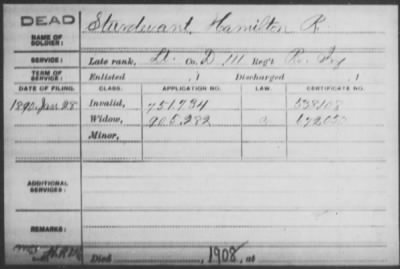 DEAD
NAME OF SOLDIER: Sturdivant, Hamilton R.
SERVICE: Late rank, Lt. Co. D, 111 Reg't
TERM OF SERVICE: Enlisted , 1 Discharged , 1
DATE OF FILING. CLASS. APPLICATION NO. LAW. CERTIFICATE NO.
1890, Jan 28 Invalid, 751.734 538108
Widow, 905.282
Minor,
ADDITIONAL SERVICES:
REMARKS:
Died , 1908, at